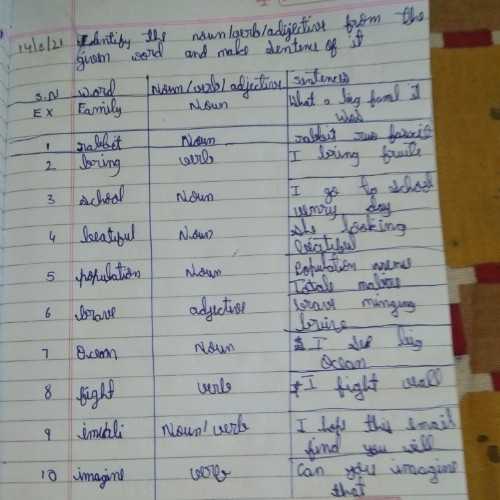 14/8/21 Identify the noun/verb/adjective from the
given word and make sentence of it
S.N word Noun/verb/adjective sentences
Ex Family Noun What a big famil it
was
1 rabbit Noun rabbit run
2 bring verb I bring fruits
3 school Noun I go to school
day
4 beatiful Noun she looking
beatiful
5 population Noun Population
6 brave adjective brave
7 Ocean Noun I see big
Ocean
8 fight verb I fight wall
9 Noun/verb I hope this email
find you will
10 imagine verb Can you imagine
that